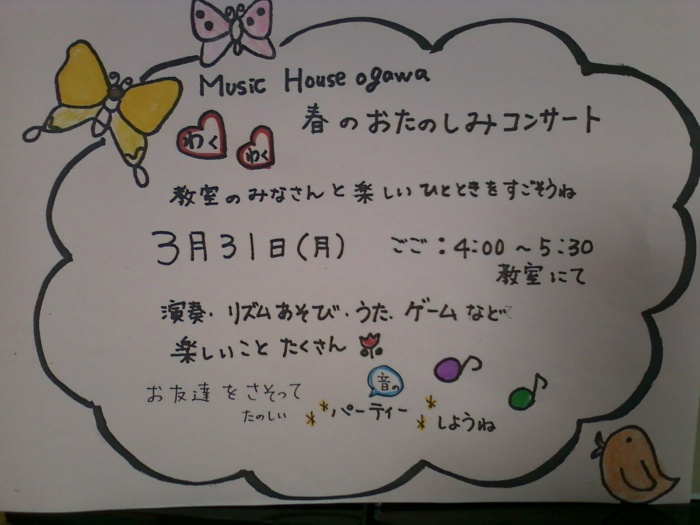 Music House ogawa
わく わく 春のおたのしみコンサート
教室のみなさんと楽しいひとときをすごそうね
3月31日(月) ごご:4:00～5:30
教室にて
演奏・リズムあそび・うた・ゲームなど
楽しいことたくさん
お友達をさそって
たのしい 音の パーティー しようね